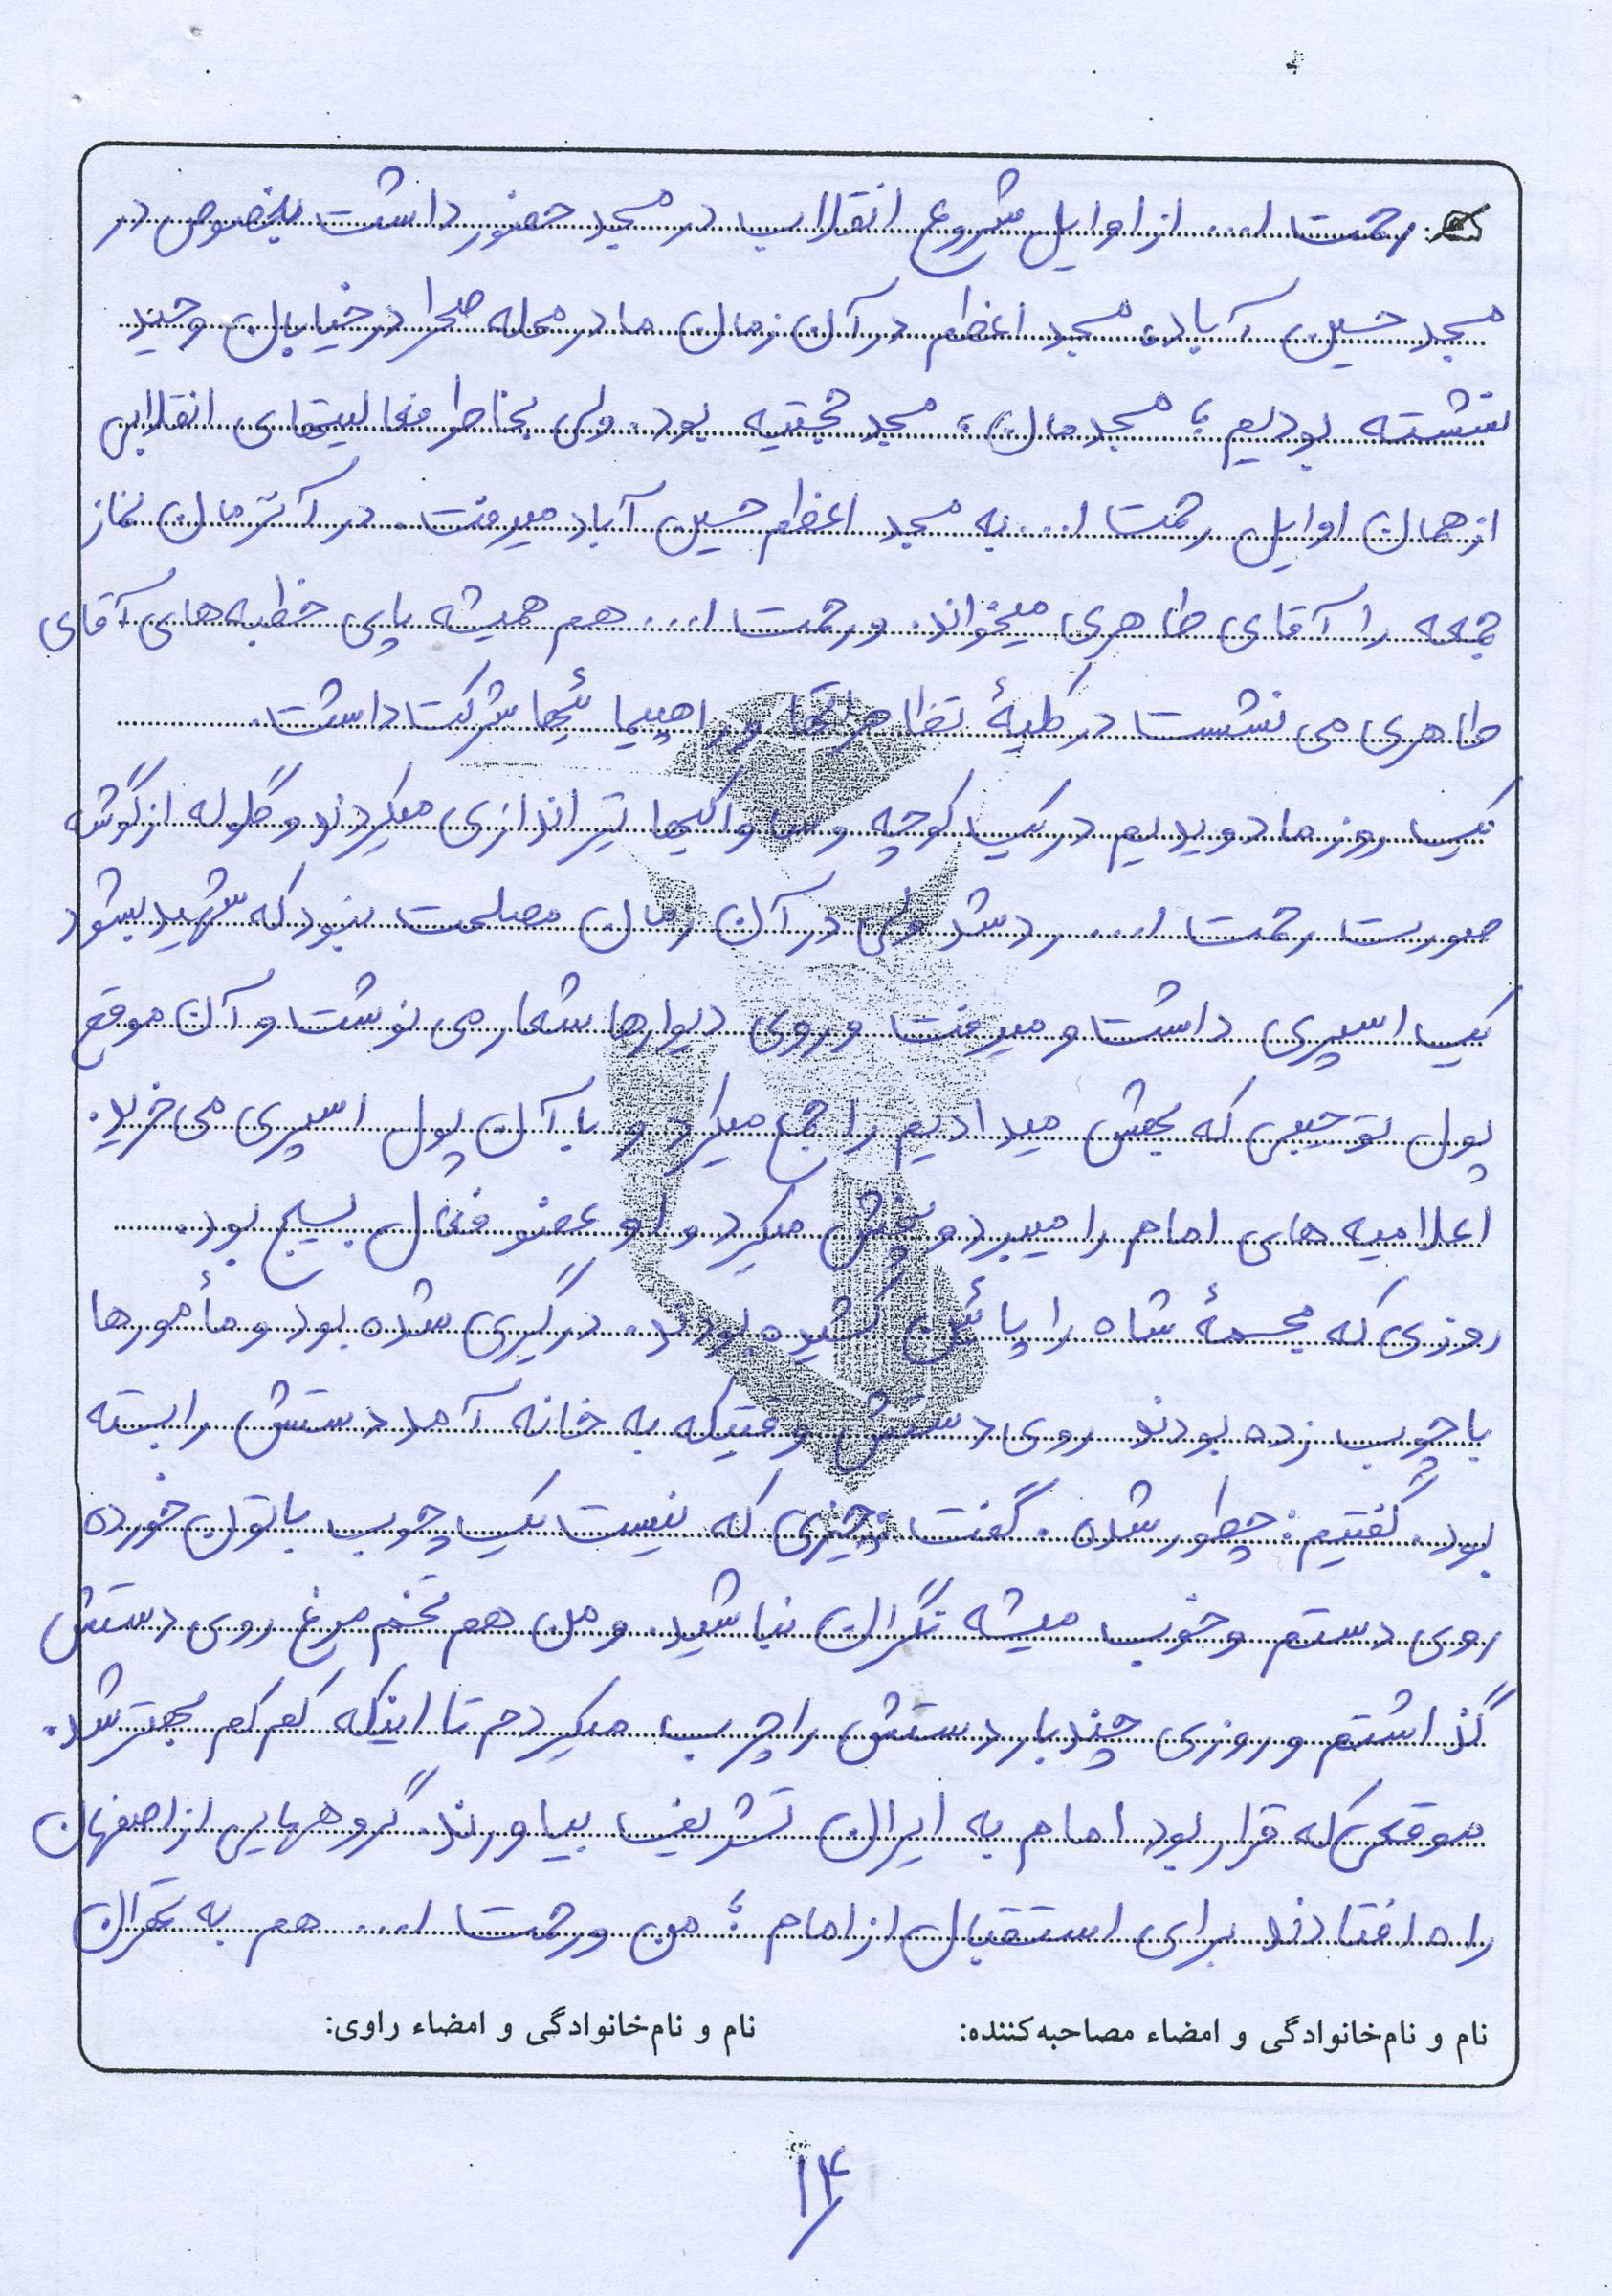 رحمت ا... از اوایل شروع انقلاب در مسجد حضور داشت بخصوص در
مسجد حسین آباد، مسجد اعظم در آن زمان ما در محله صحرا در خیابان وحید
نشسته بودیم؛ مسجدمان، مسجد حجتیه بود. ولی بخاطر فعالیتهای انقلابی
از همان اوایل رحمت ا... به مسجد اعظم حسین آباد میرفت. در آنزمان نماز
جمعه را آقای طاهری میخواند. و رحمت ا... هم همیشه پای خطبه‌های آقای
طاهری می نشست در کلیهٔ تظاهراتها و راهپیمائیها شرکت داشت.
یک روز ما دویدیم در یک کوچه و ساواکیها تیراندازی میکردند و گلوله از گوشه
صورت رحمت ا... رد شد ولی در آن زمان مصلحت نبود که شهید بشود
یک اسپری داشت و میرفت و روی دیوارها شعار می نوشت و آن موقع
پول تو جیبی که بهش میدادیم را جمع میکرد و با آن پول اسپری می خرید.
اعلامیه های امام را میبرد و پخش میکرد و او عضو فعال بسیج بود.
روزی که مجسمهٔ شاه را پائین کشیده بودند. درگیری شده بود و مأمورها
با چوب زده بودند روی دستش وقتیکه به خانه آمد دستش را بسته
بود. گفتیم: چطور شده. گفت: چیزی که نیست یک چوب باتون خورده
روی دستم و خوب میشه نگران نباشید. و من هم تخم مرغ روی دستش
گذاشتم و روزی چند بار دستش را چرب میکردم تا اینکه کم کم بهتر شد.
موقعی که قرار بود امام به ایران تشریف بیاورند. گروههایی از اصفهان
راه افتادند برای استقبال از امام؛ من و رحمت ا... هم به تهران
نام و نام‌خانوادگی و امضاء مصاحبه‌کننده: نام و نام‌خانوادگی و امضاء راوی:
۱۴